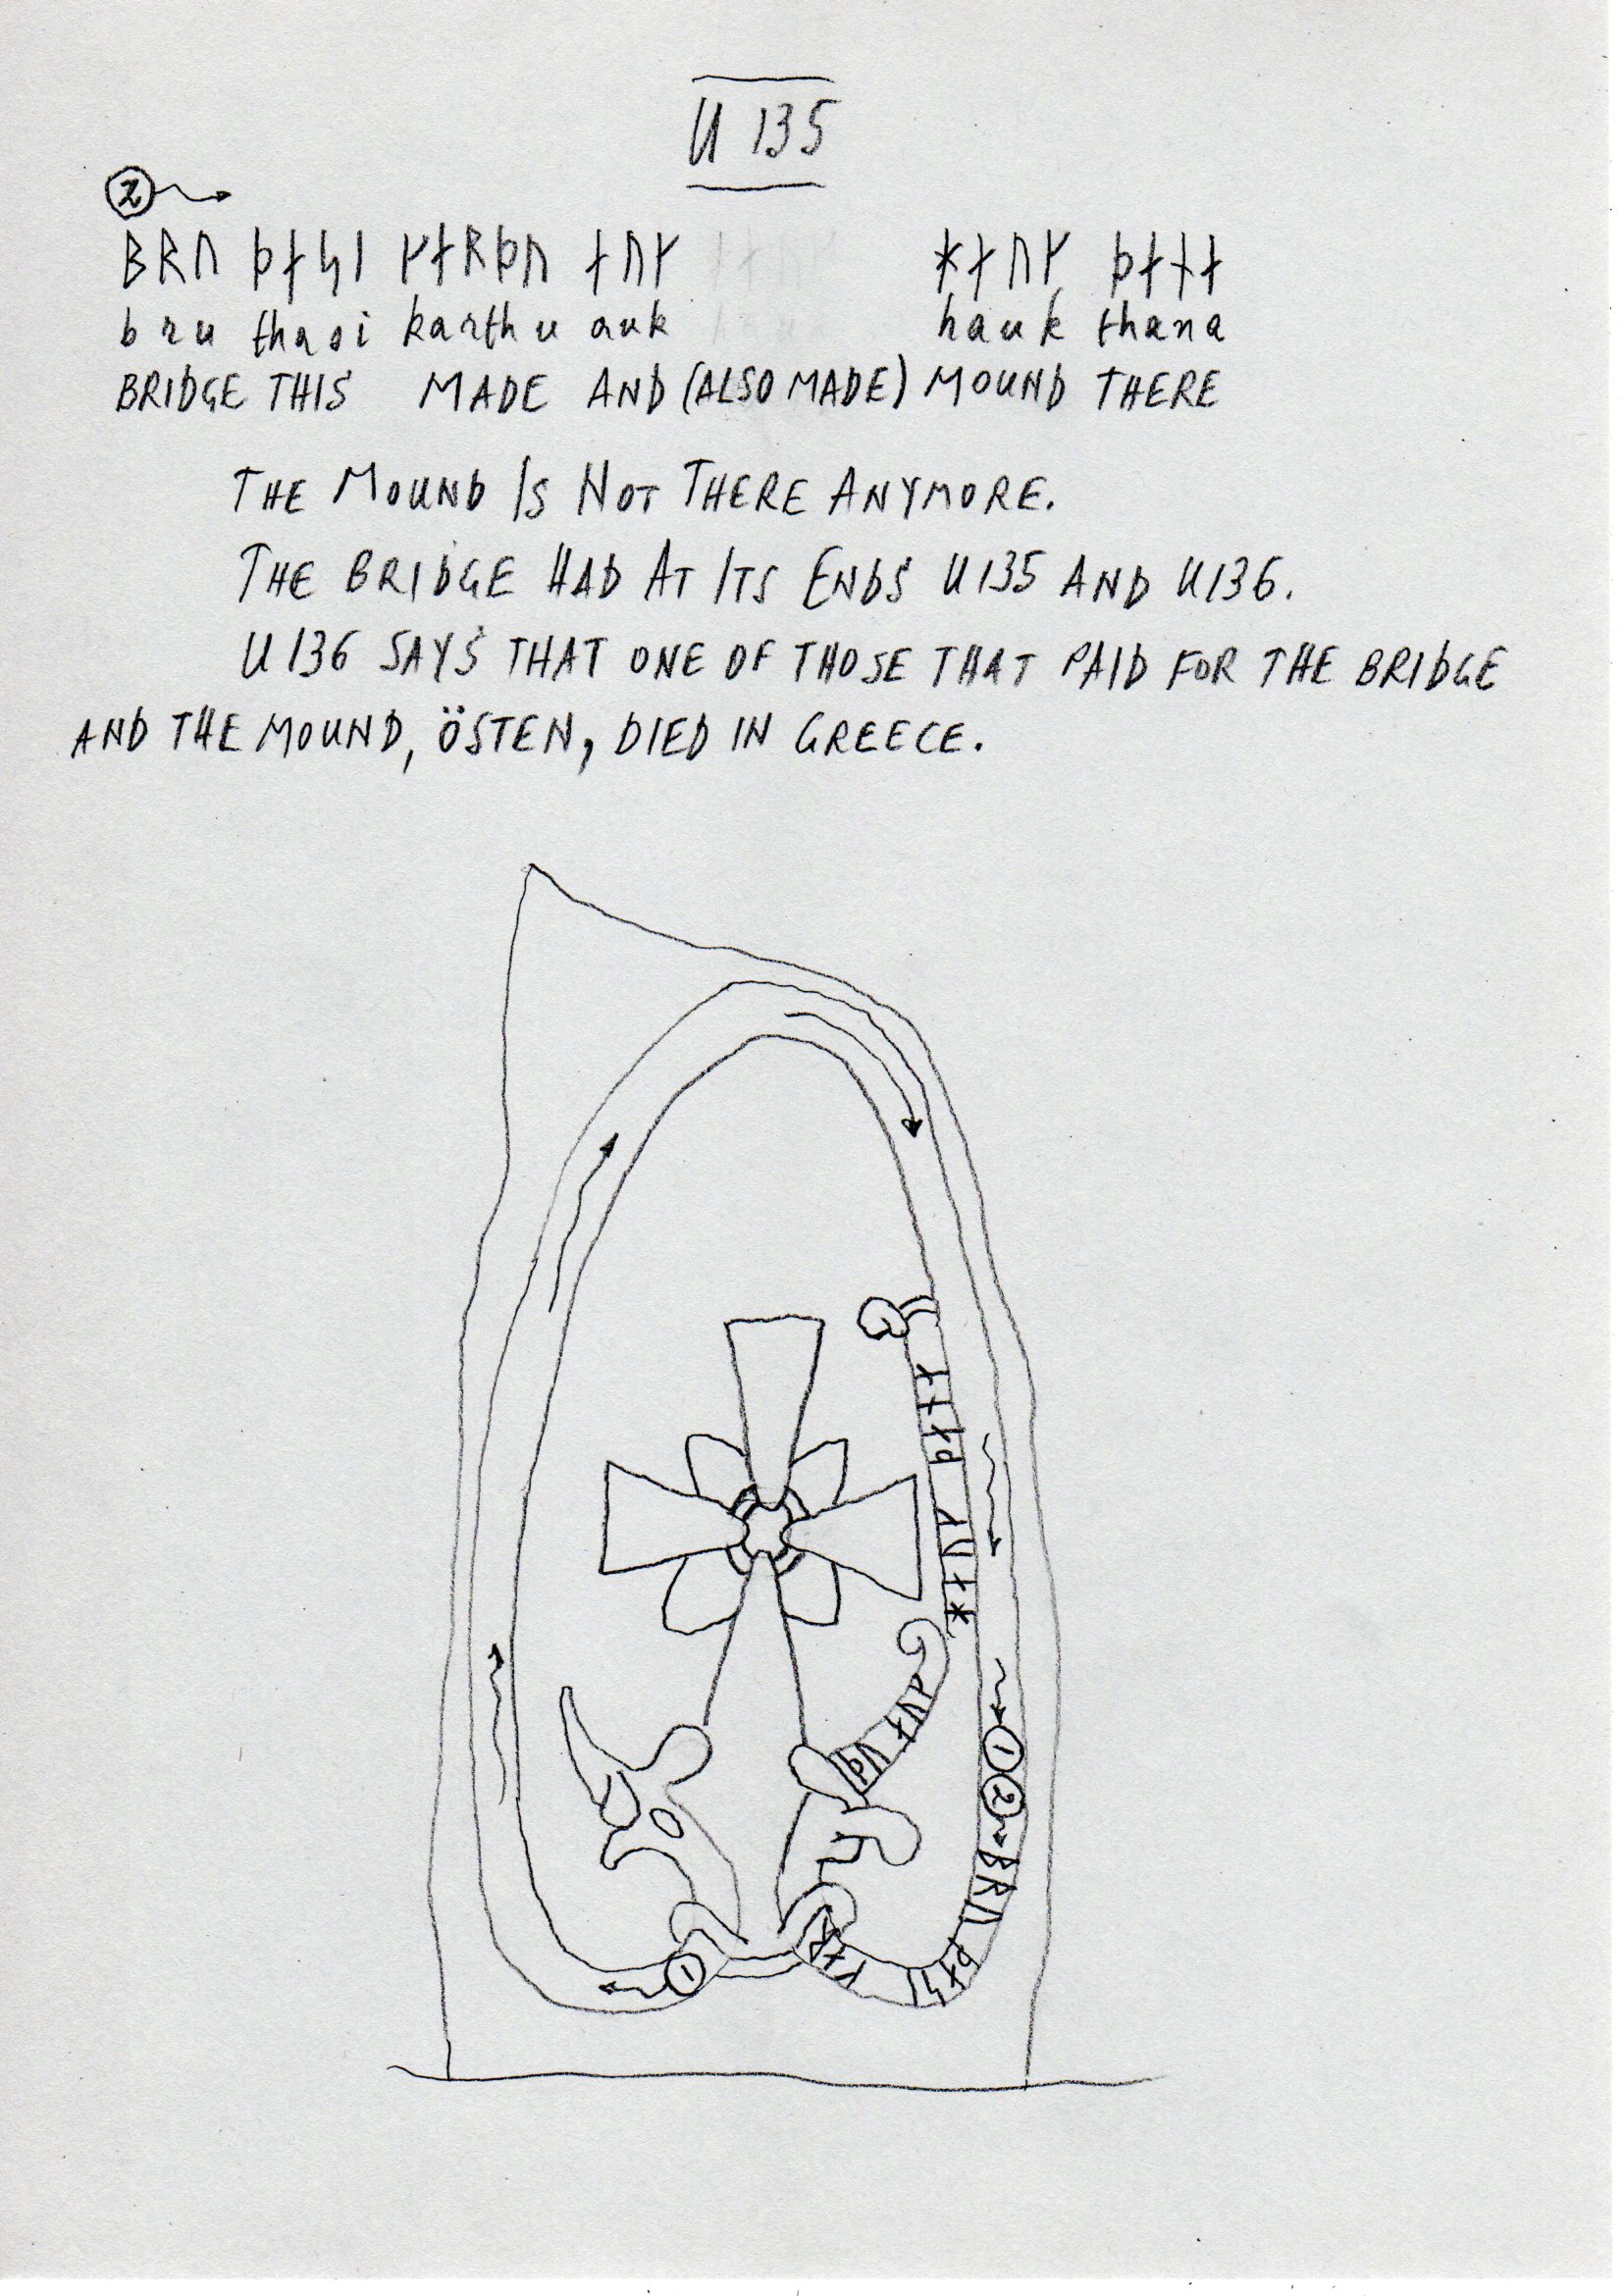 U 135
②
ᛒᚱᚢ ᚦᛅᛋᛁ ᚴᛅᚱᚦᚢ ᛅᚢᚴ ᚼᛅᚢᚴ ᚦᛅᚾᛅ
bru thasi karthu auk hauk thana
BRIDGE THIS MADE AND (ALSO MADE) MOUND THERE
THE MOUND IS NOT THERE ANYMORE.
THE BRIDGE HAD AT ITS ENDS U 135 AND U 136.
U 136 SAYS THAT ONE OF THOSE THAT PAID FOR THE BRIDGE
AND THE MOUND, ÖSTEN, DIED IN GREECE.
ᚼᛅᚢᚴ ᚦᛅᚾᛅ
ᚦᚢ ᛅᚢᚴ
①
②
ᛒᚱᚢ ᚦᛅᛋ
ᚴᛅᚱ
①